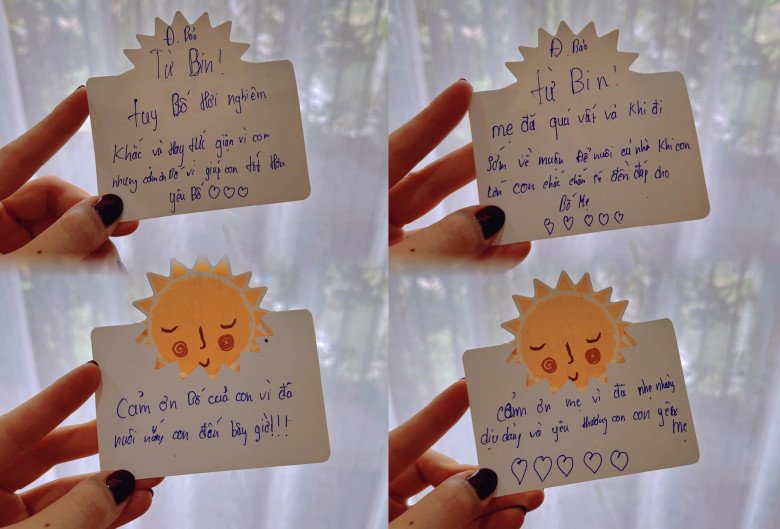 Đ. Bảo
Từ Bin!
tuy Bố Hơi nghiêm
Khắc và Hay tức giận vì con
nhưng cảm ơn Bố vì giúp con tốt Hơn
yêu Bố ♡♡♡
Đ. Bảo
từ Bin!
mẹ đã quá vất vả khi đi
sớm về muộn Để nuôi cả nhà Khi con
lớn con chắc chắn sẽ đền đáp cho
Bố Mẹ
♡ ♡ ♡ ♡ ♡
Cảm ơn Bố của con vì đã
nuôi nấng con đến bây giờ!!!
cảm ơn mẹ vì đã nhẹ nhàng
dịu dàng và yêu thương con con yêu
mẹ
♡♡♡♡♡